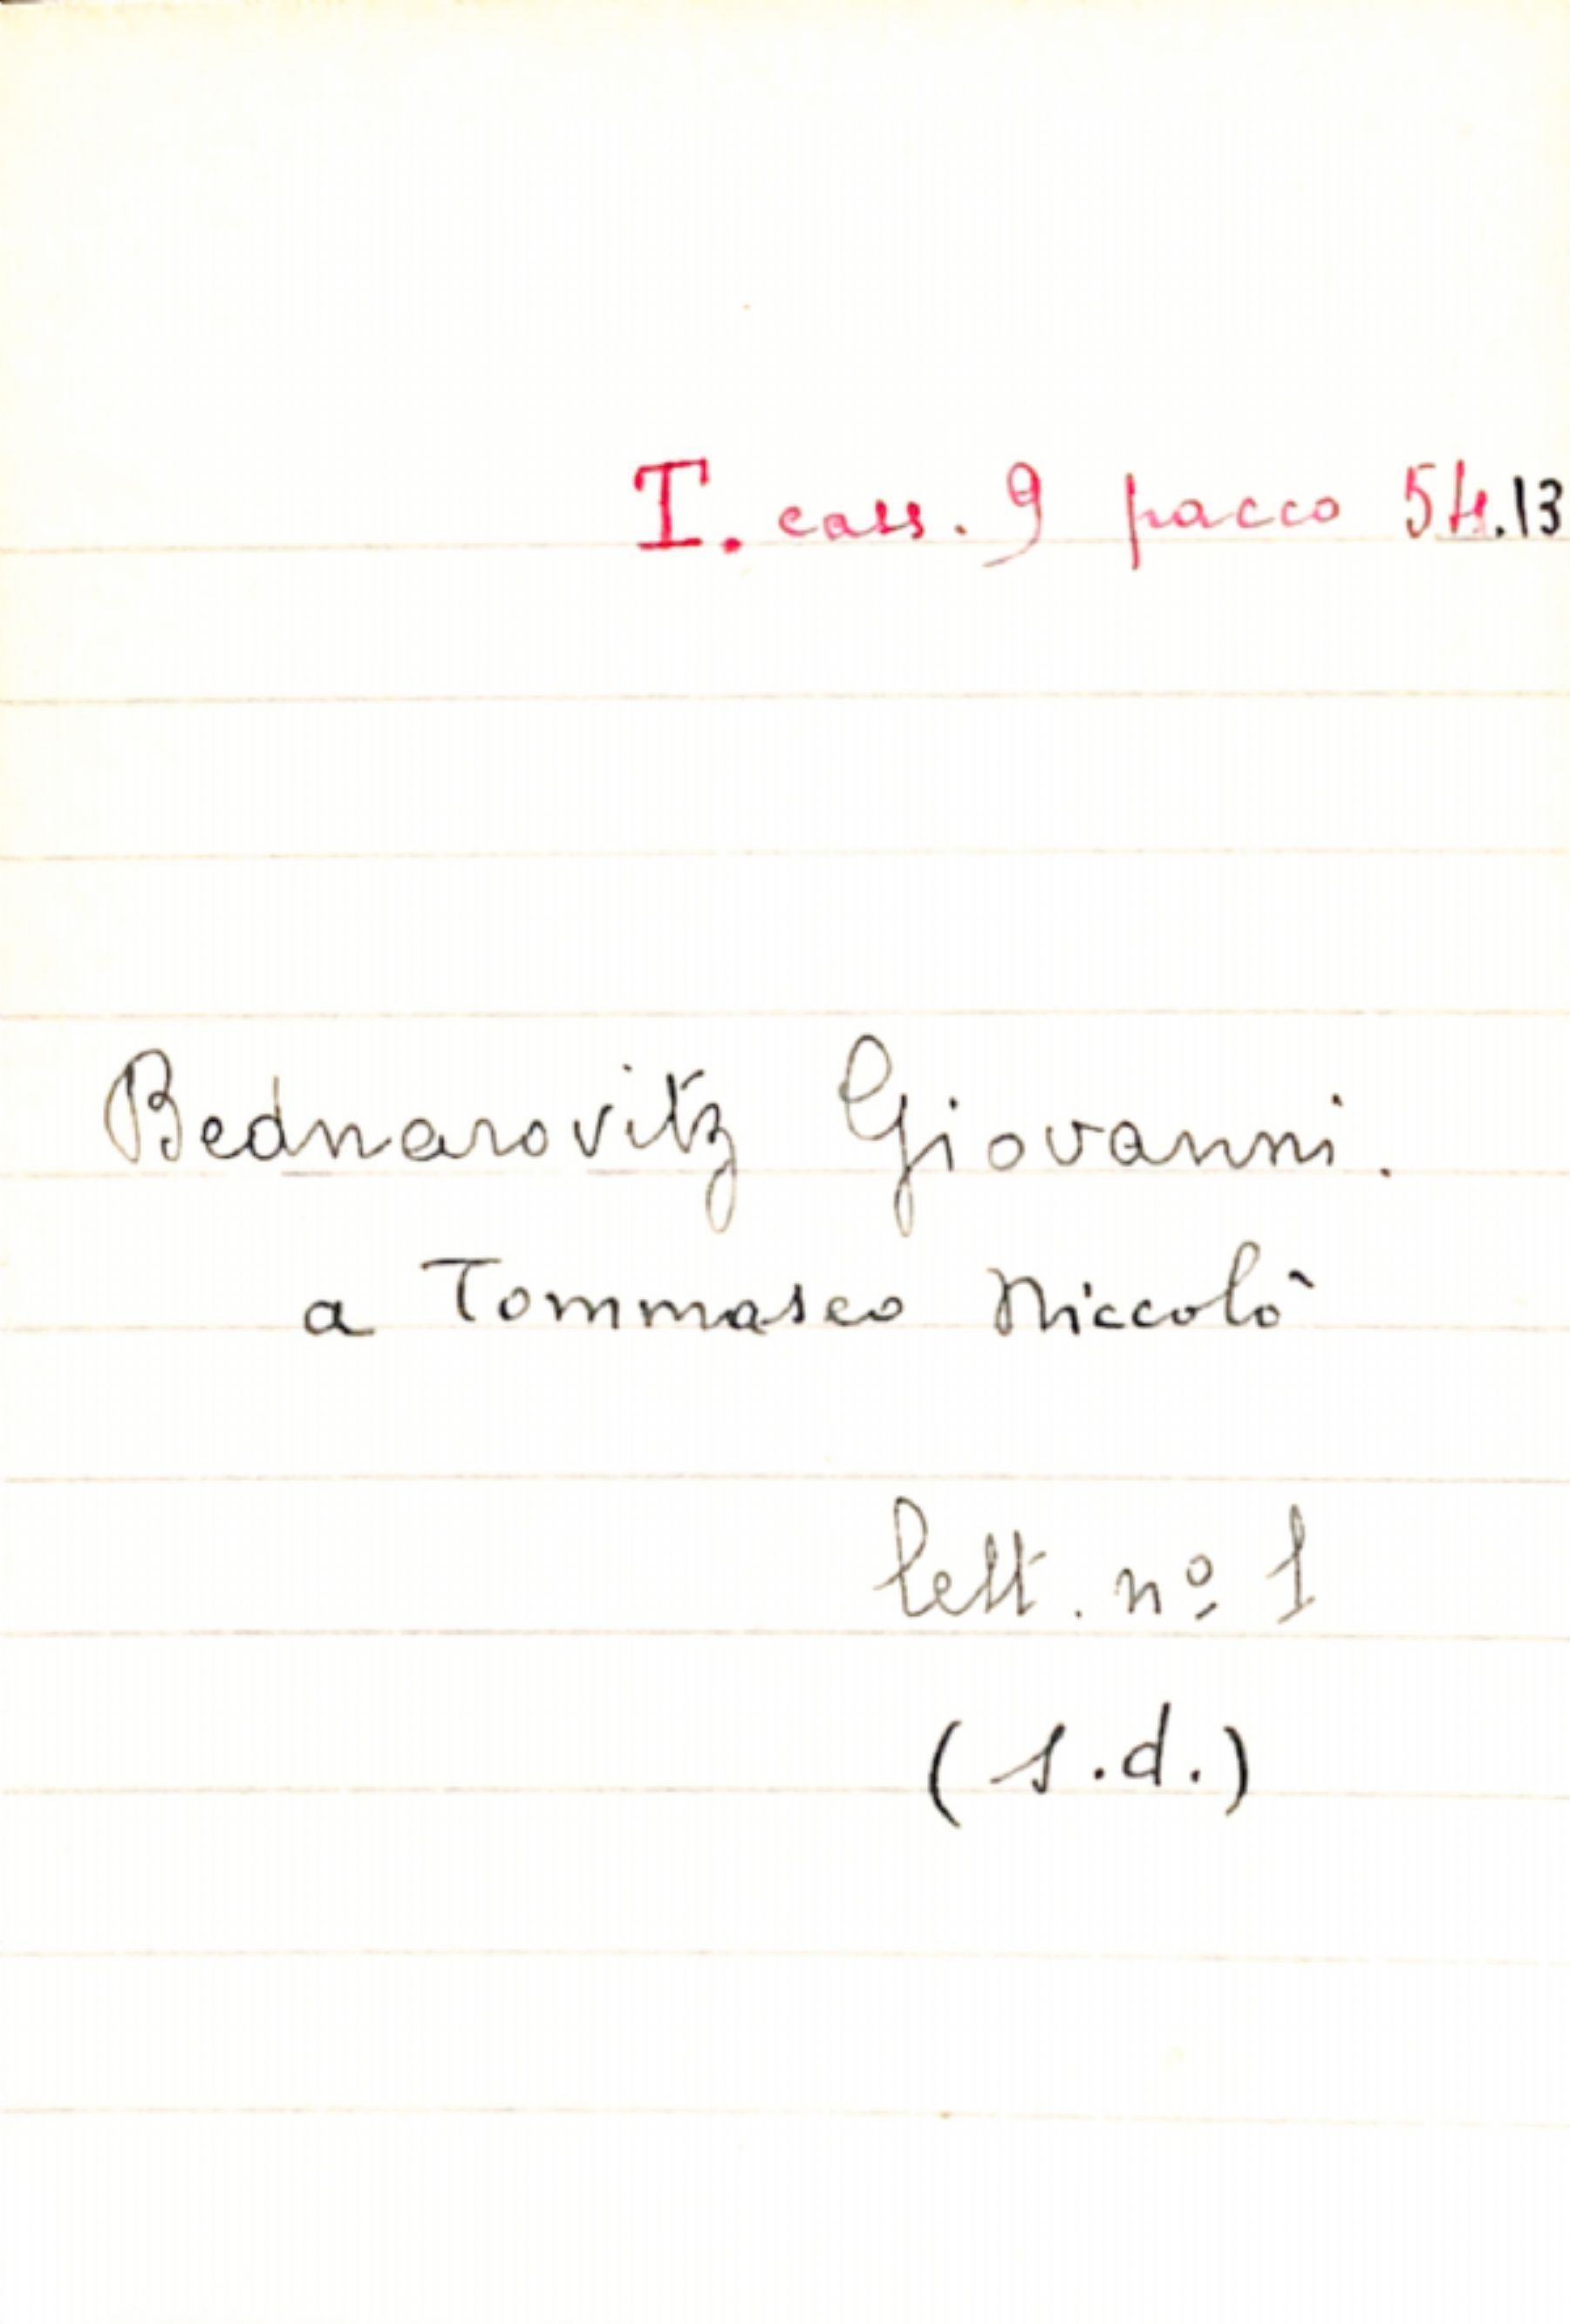 T. cass. 9 pacco 54.13
Bednarovitz Giovanni.
a Tommaseo Niccolò
lett. nº 1
(s.d.)